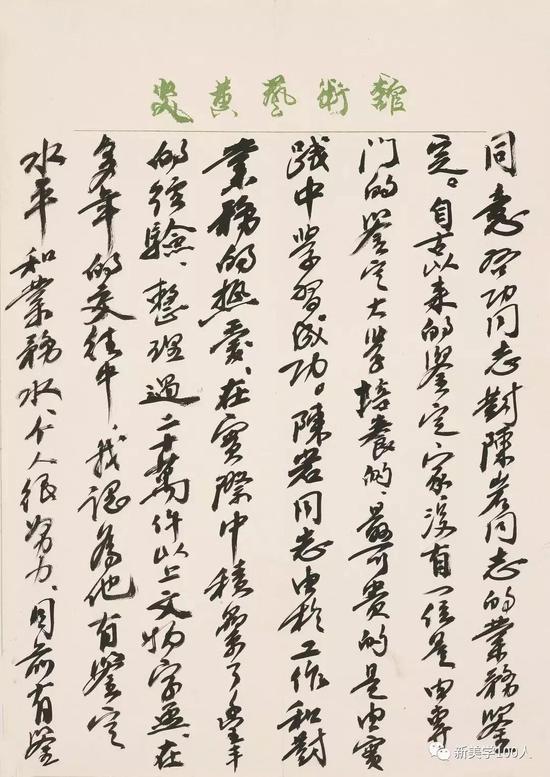 炎黃藝術館
同意啓功同志對陳岩同志的業務鑒
定。自古以来的鑒定家、没有一位是由專
门的鑒定大學培養的、最可贵的是由實
践中學習、成功。陳岩同志由於工作和對
業務的热爱、在實際中積累了豐富
的经驗、整理過二十萬件以上文物字画、在
多年的交往中、我認為他有鑒定
水平和業務水、个人很努力、目前有鑒
新美学100人